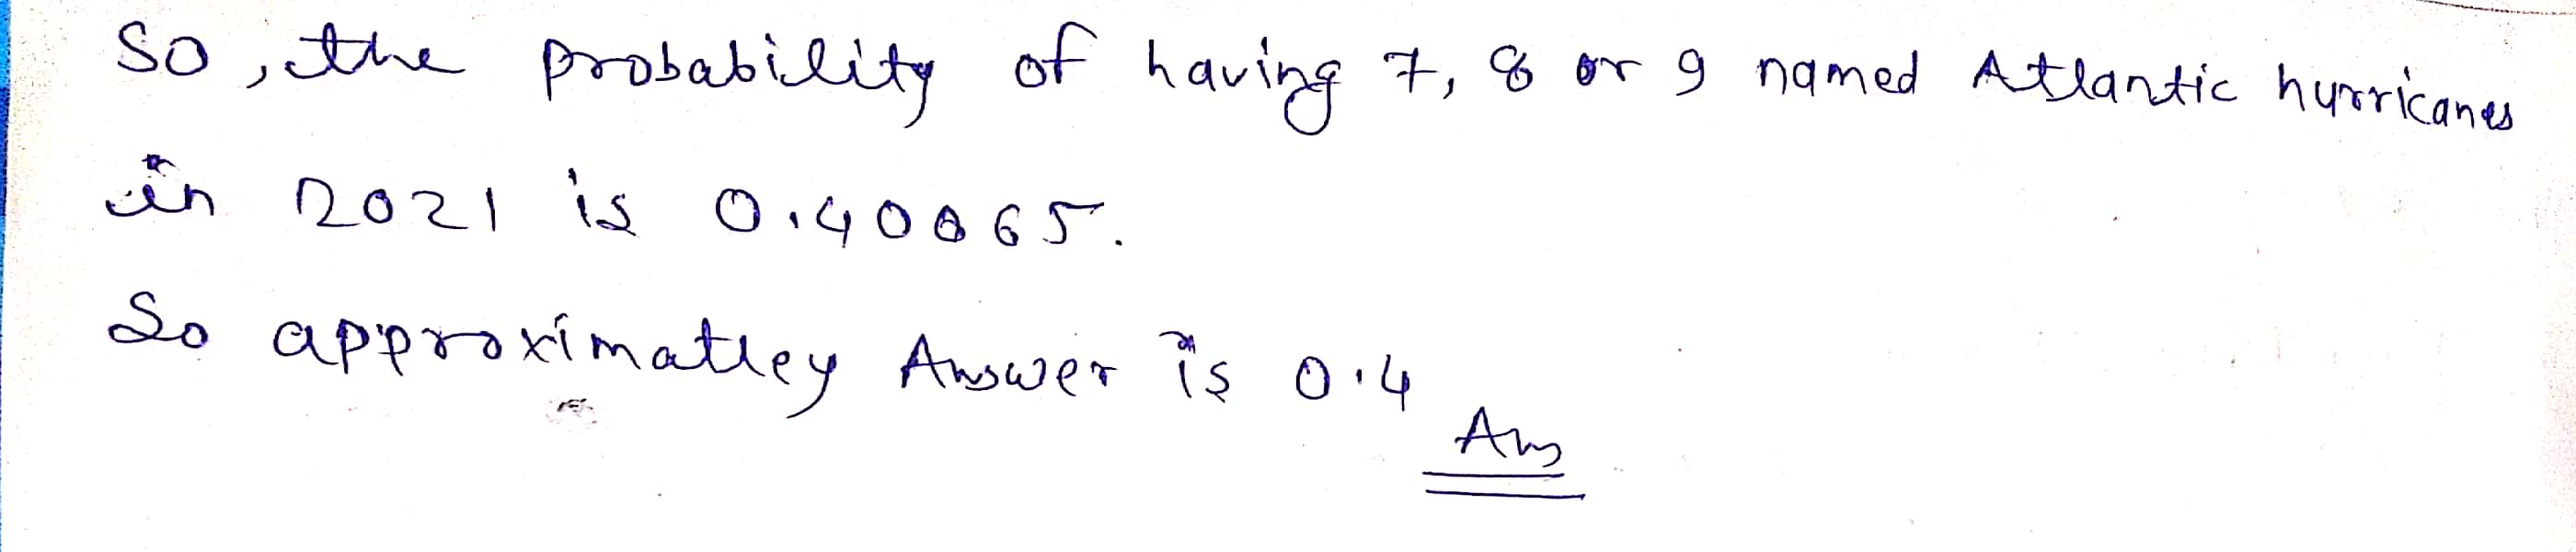 So, the probability of having 7, 8 or 9 named Atlantic hurricanes
in 2021 is 0.40065.
So approximatley Answer is 0.4
Ans